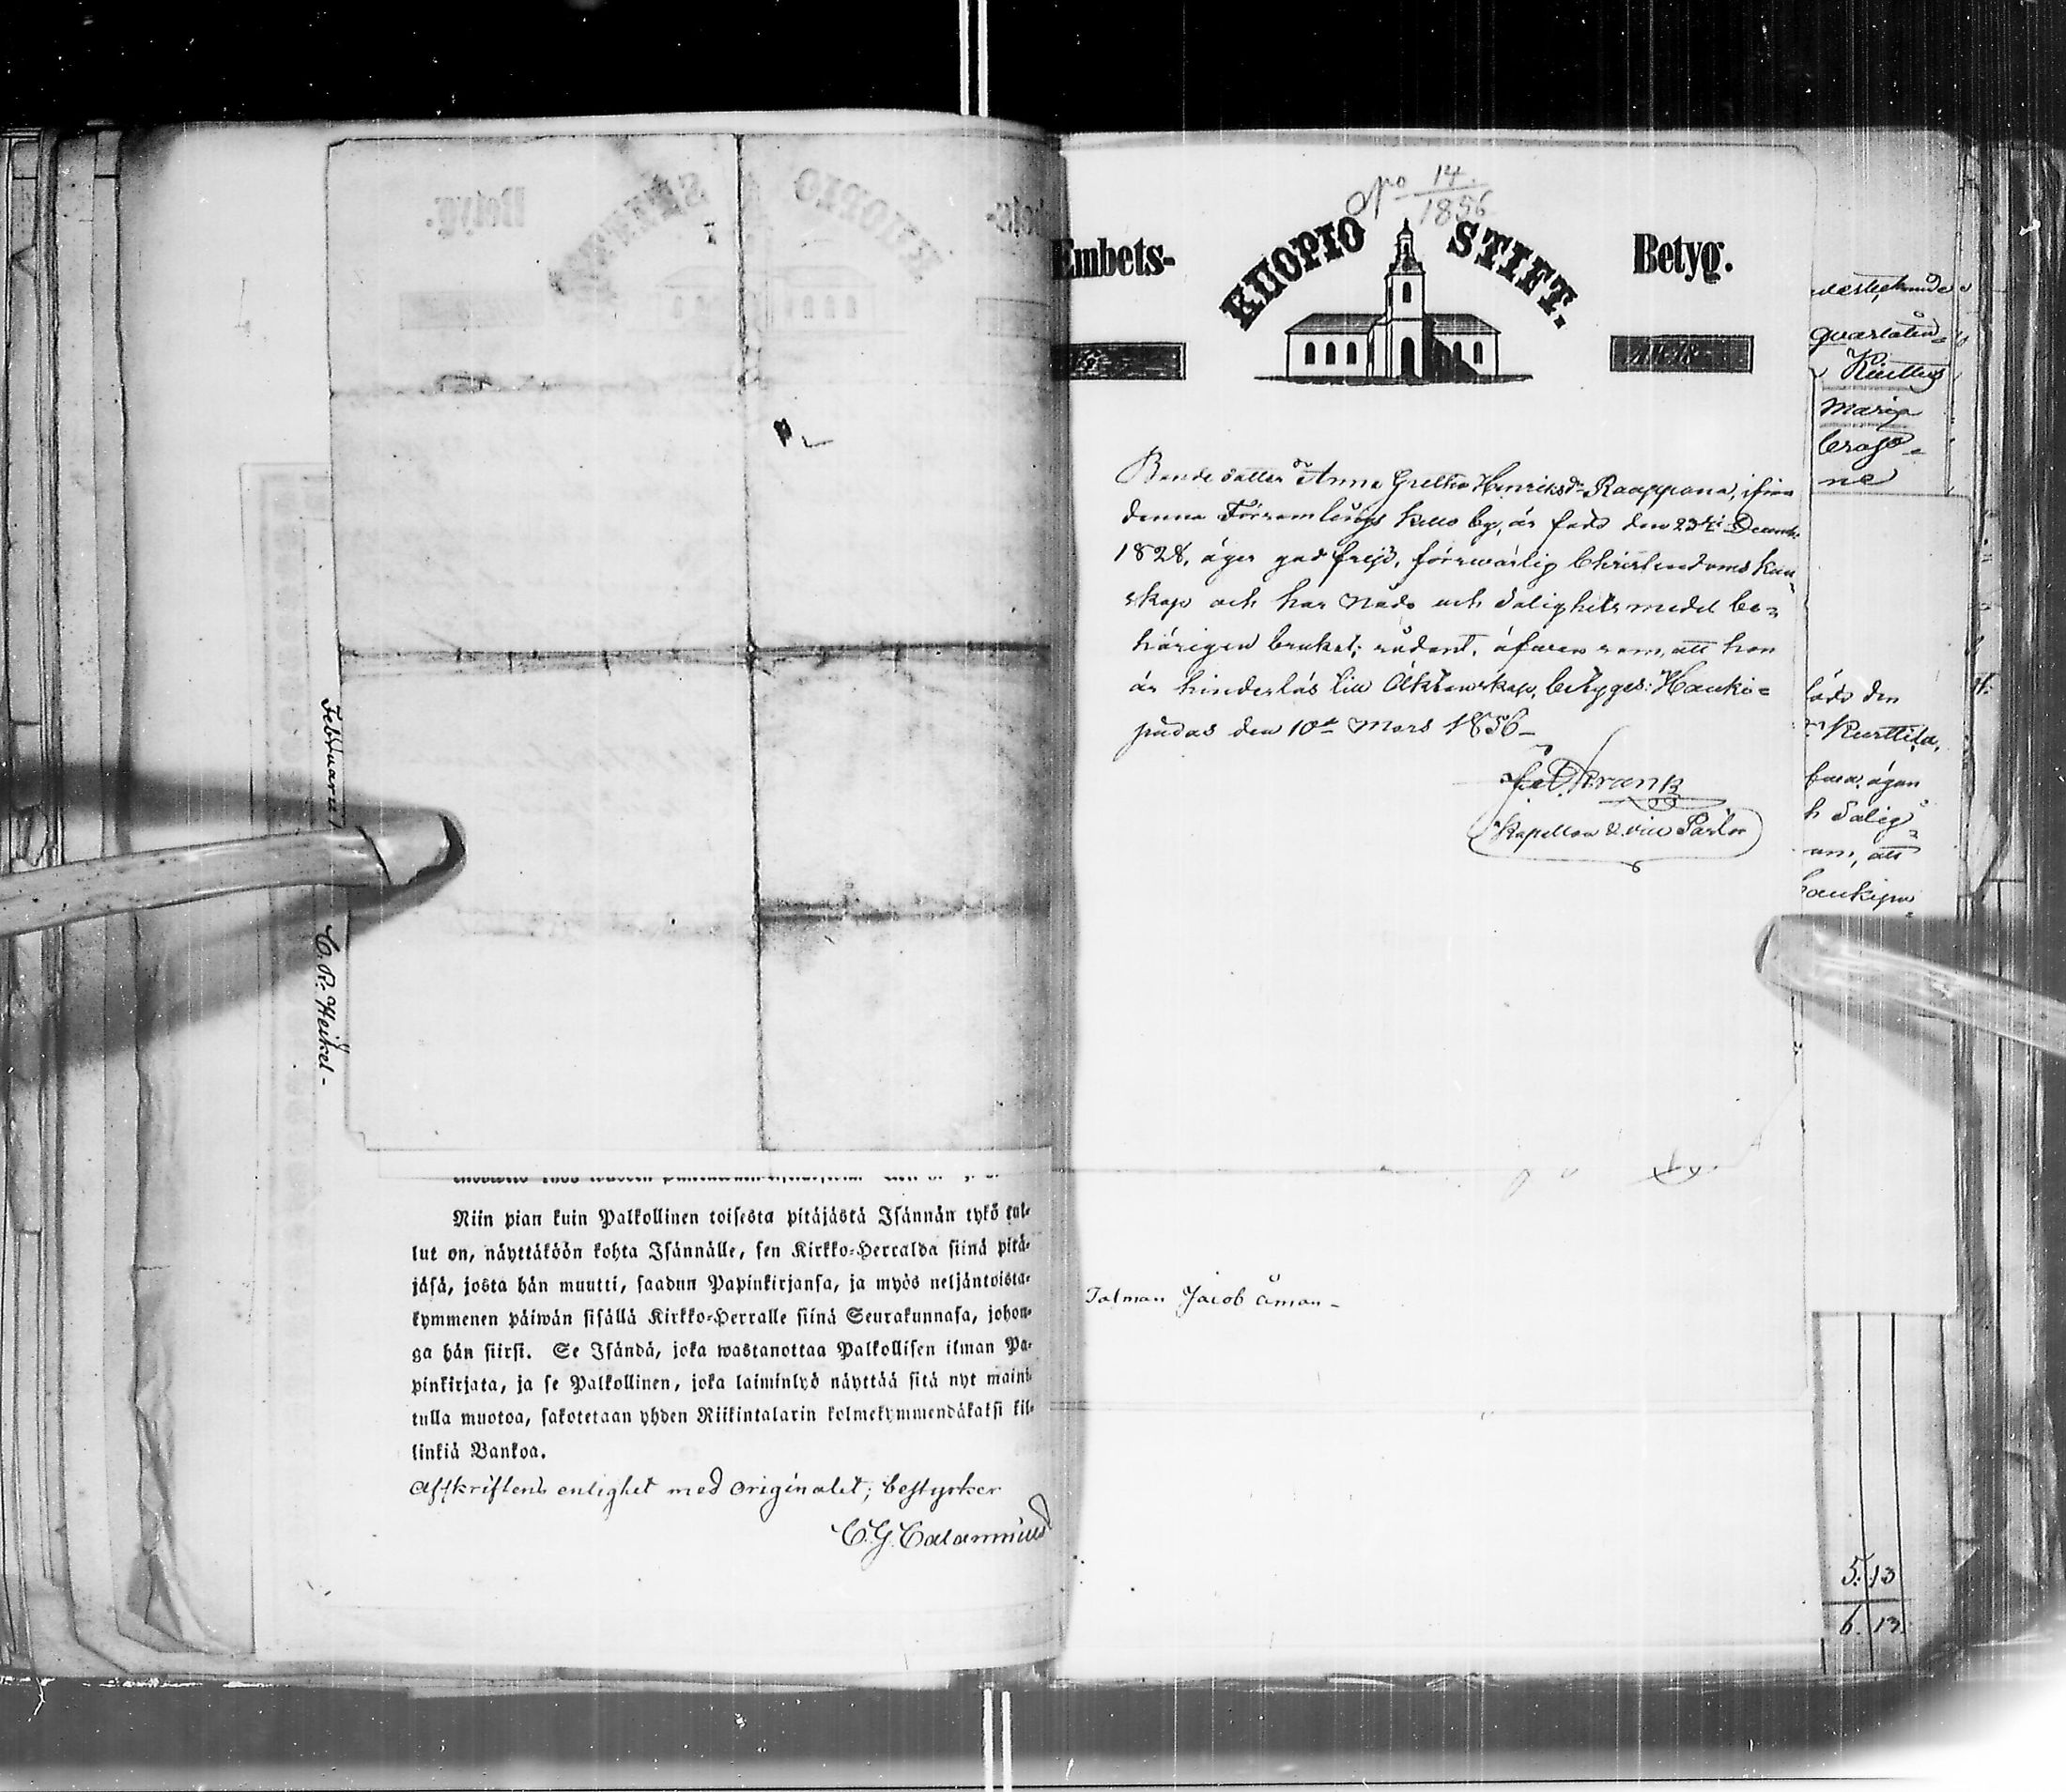 Februarii
C. R. Heikel-
Niin pian kuin Palkollinen toisesta pitäjästä Isännän tykö tul-
lut on, näyttäköön kohta Isännälle, sen Kirkko-Herralda siinä pitä-
jäsä, josta hän muutti, saadun Papinkirjansa, ja myös neljäntoista-
kymmenen päiwän sisällä Kirkko-Herralle siinä Seurakunnasa, johon-
ga hän siirsi. Se Isändä, joka wastanottaa Palkollisen ilman Pa-
pinkirjata, ja se Palkollinen, joka laiminlyö näyttää sitä nyt mainit-
tulla muotoa, sakotetaan yhden Riikintalarin kolmekymmendäkaksi kil-
linkiä Bankoa.
Afskriftens enlighet med originalet; bestyrker
C. G. Calamnius
No 14.
1856
Embets-
KUOPIO STIFT.
Betyg.
Bonde dotter Anna Gretha Henriksdr Raappana, ifrån
denna Församlings Kello by, är född den 23di Decemb.
1828, äger god frejd, förswarlig Christendoms kun
skap och har Nåds och Salighets medel be-
hörigen brukat; sådant, äfwen som, att hon
är hinderlös till Äktenskap, betyges: Hauki-
pudas den 10de Mars 1856-
Frank
Kapellan & vice Pastor
Talman Jacob Åman-
Maria
ne
född den
Kurttila,
h Salig-
om, att
Haukipu
5. 13
6. 13.